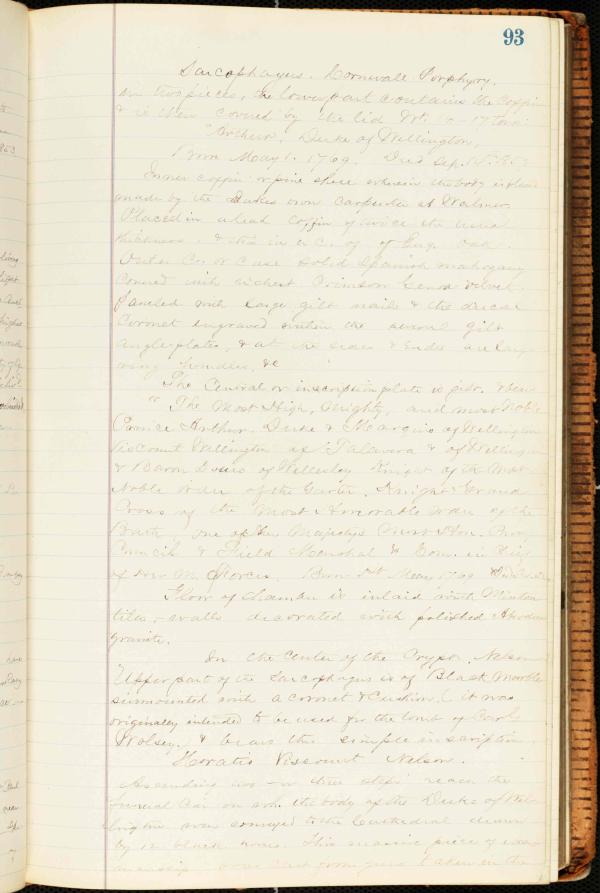 93
Sarcophagus. Cornwall Porphyry.
in two pieces, the lower part contains the coffin
& is then covered by the lid Wt. 17 tons
"Arthur, Duke of Wellington,
Born May 1. 1769. Died Sep. 14. 1852
Inner coffin or pine shell wherein the body is placed
made by the Dukes own carpenter at Walmer,
Placed in a lead coffin of twice the usual
thickness, & this in a C. of Eng. oak
Outer Co. or case solid Spanish mahogany
covered with richest Crimson Genoa velvet
paneled with large gilt nails & the ducal
Coronet engraved within the several gilt
angle-plates, & at the sides & Ends are
handles, &c
The Central or inscription plate is
" The Most High, Mighty, and most Noble
Prince Arthur, Duke & Marquis of Wellington
Viscount Wellington of Talavera & of Wellington
& Baron Douro of Wellesley Knight of the Most
Noble Order of the Garter, Knight Grand
Cross of the Most Honorable Order of the
Bath, one of Her Majestys Most Hon. Privy
Council & Field Marshal & Com. in Chief
of Her M. Forces. Born 1st May 1769
Floor of chamber is inlaid with Minton
tiles, - walls decorated with polished Aberdeen
granite.
In the Center of the Crypt. Nelson
Upper part of the Sarcophagus is of Black Marble
surmounted with a coronet & Cushion, ( it was
originally intended to be used for the tomb of Card.
Wolsey. & bears the simple inscription
Horatio Viscount Nelson.
Ascending steps reach the
Funeral Car on wh. the body of the Duke of Wel-
lington was conveyed to the Cathedral drawn
by 12 black horses. This massive piece of
cast from guns taken in the